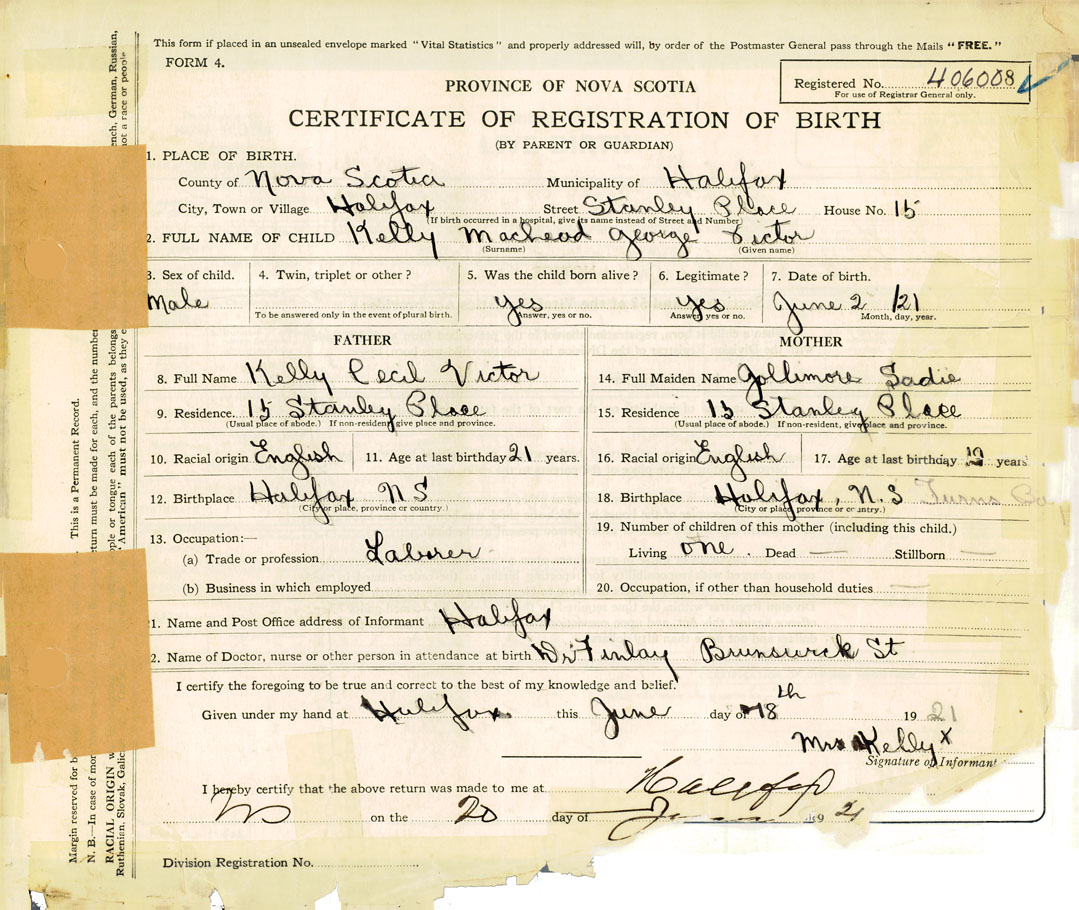 This form if placed in an unsealed envelope marked "Vital Statistics" and properly addressed will, by order of the Postmaster General pass through the Mails "FREE."
FORM 4.
Registered No. 406008
For use of Registrar General only.
PROVINCE OF NOVA SCOTIA
CERTIFICATE OF REGISTRATION OF BIRTH
(BY PARENT OR GUARDIAN)
1. PLACE OF BIRTH.
County of Nova Scotia Municipality of Halifax
City, Town or Village Halifax Street Stanley Place House No. 15
(If birth occurred in a hospital, give its name instead of Street and Number)
2. FULL NAME OF CHILD Kelly Macleod George Victor
(Surname) (Given name)
3. Sex of child. 4. Twin, triplet or other? 5. Was the child born alive? 6. Legitimate? 7. Date of birth.
Male yes yes June 2 /21
To be answered only in the event of plural birth. Answer, yes or no. Answer, yes or no. Month, day, year.
FATHER MOTHER
8. Full Name Kelly Cecil Victor 14. Full Maiden Name Gollimore Sadie
9. Residence. 15 Stanley Place 15. Residence 15 Stanley Place
(Usual place of abode.) If non-resident, give place and province. (Usual place of abode.) If non-resident, give place and province.
10. Racial origin English 11. Age at last birthday 21 years. 16. Racial origin English 17. Age at last birthday years
12. Birthplace Halifax N S 18. Birthplace Halifax, N.S
(City or place, province or country.) (City or place, province or country.)
13. Occupation:— 19. Number of children of this mother (including this child.)
(a) Trade or profession Laborer Living one. Dead — Stillborn —
(b) Business in which employed 20. Occupation, if other than household duties —
1. Name and Post Office address of Informant Halifax
2. Name of Doctor, nurse or other person in attendance at birth Dr Finlay Brunswick St
I certify the foregoing to be true and correct to the best of my knowledge and belief.
Given under my hand at Halifax. this June day of 18th 1921
Mrs Kelly x
Signature of Informant
I hereby certify that the above return was made to me at Halifax
NS on the 20 day of June 1921
Division Registration No.
Margin reserved for b This is a Permanent Record.
N. B.—In case of mor return must be made for each, and the number
RACIAL ORIGIN w ople or tongue each of the parents belongs ench, German, Russian,
Ruthenian, Slovak, Galic "American" must not be used, as they e not a race or people